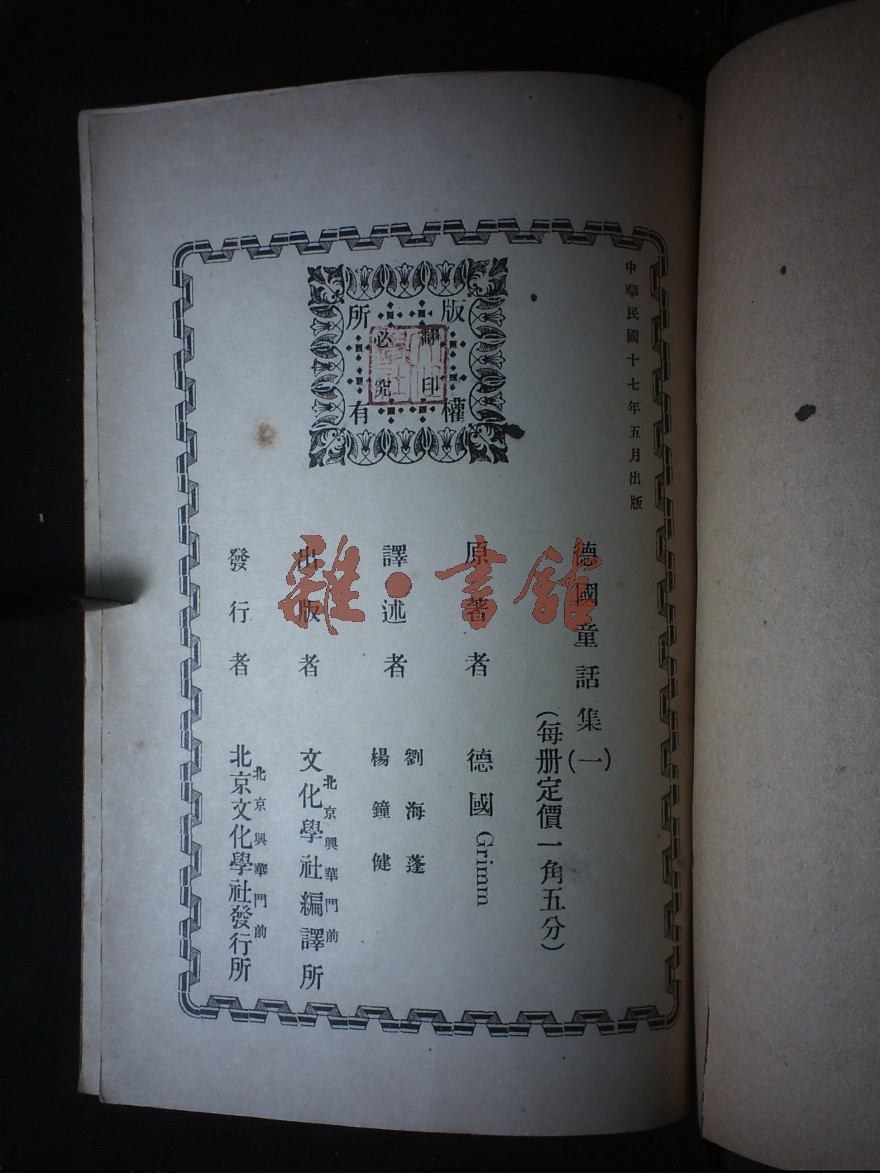 中華民國十七年五月出版
版權
所有
翻印
必究
德國童話集(一)
(每册定價一角五分)
原著者 德國 Grimm
譯述者 劉海蓬
楊鐘健
出版者 北京興華門前
文化學社編譯所
發行者 北京興華門前
北京文化學社發行所
雜·書館